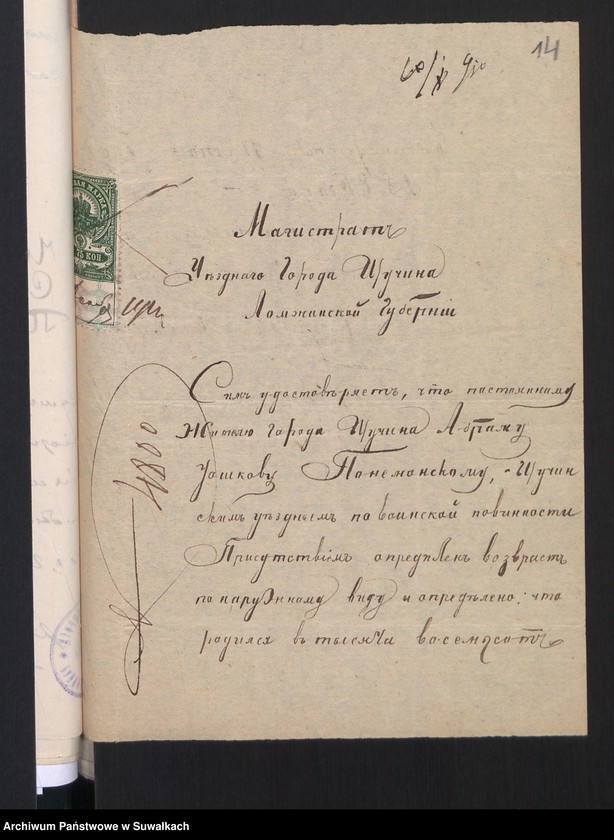 14
Магистратъ
Уѣзднаго Города Щучина
Ломжинской Губерніи
Симъ удостовѣряетъ, что постоянному
Жителю города Щучина Абраму
Іошкову Понемонскому, Щучин
скимъ уѣзднымъ по воинской повинности
Присутствіемъ опредѣленъ возврастъ
по наружному виду и опредѣлено: что
родился въ тысяча восемьсотъ
4800
КОП
Archiwum Państwowe w Suwałkach